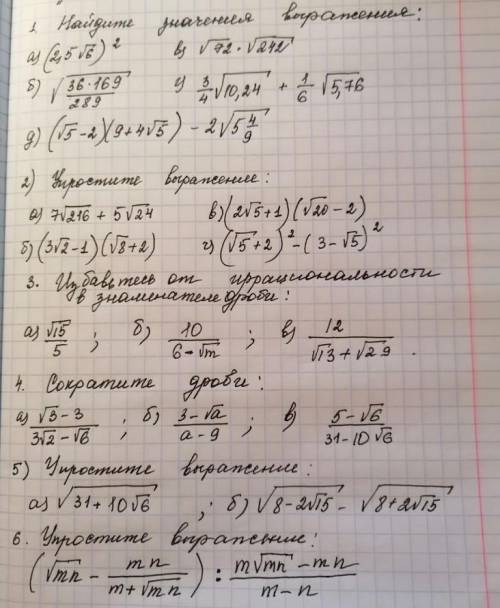 1. Найдите значения выражения:
а) (2,5√6)² в) √72 · √242
б) √(36·169/289) г) 3/4 √10,24 + 1/6 √5,76
д) (√5-2)(9+4√5) - 2√(5 4/9)
2) Упростите выражение:
а) 7√216 + 5√24 в) (2√5+1)(√20-2)
б) (3√2-1)(√8+2) г) (√5+2)² - (3-√5)²
3. Избавьтесь от иррациональности
в знаменателе дроби:
а) √15/5 ; б) 10/(6-√m) ; в) 12/(√13+√29) .
4. Сократите дроби:
а) (√3-3)/(3√2-√6) ; б) (3-√a)/(a-9) ; в) (5-√6)/(31-10√6)
5) Упростите выражение:
а) √(31+10√6) ; б) √(8-2√15) - √(8+2√15)
6. Упростите выражение:
(√mn - mn/(m+√mn)) : (m√mn - mn)/(m-n)